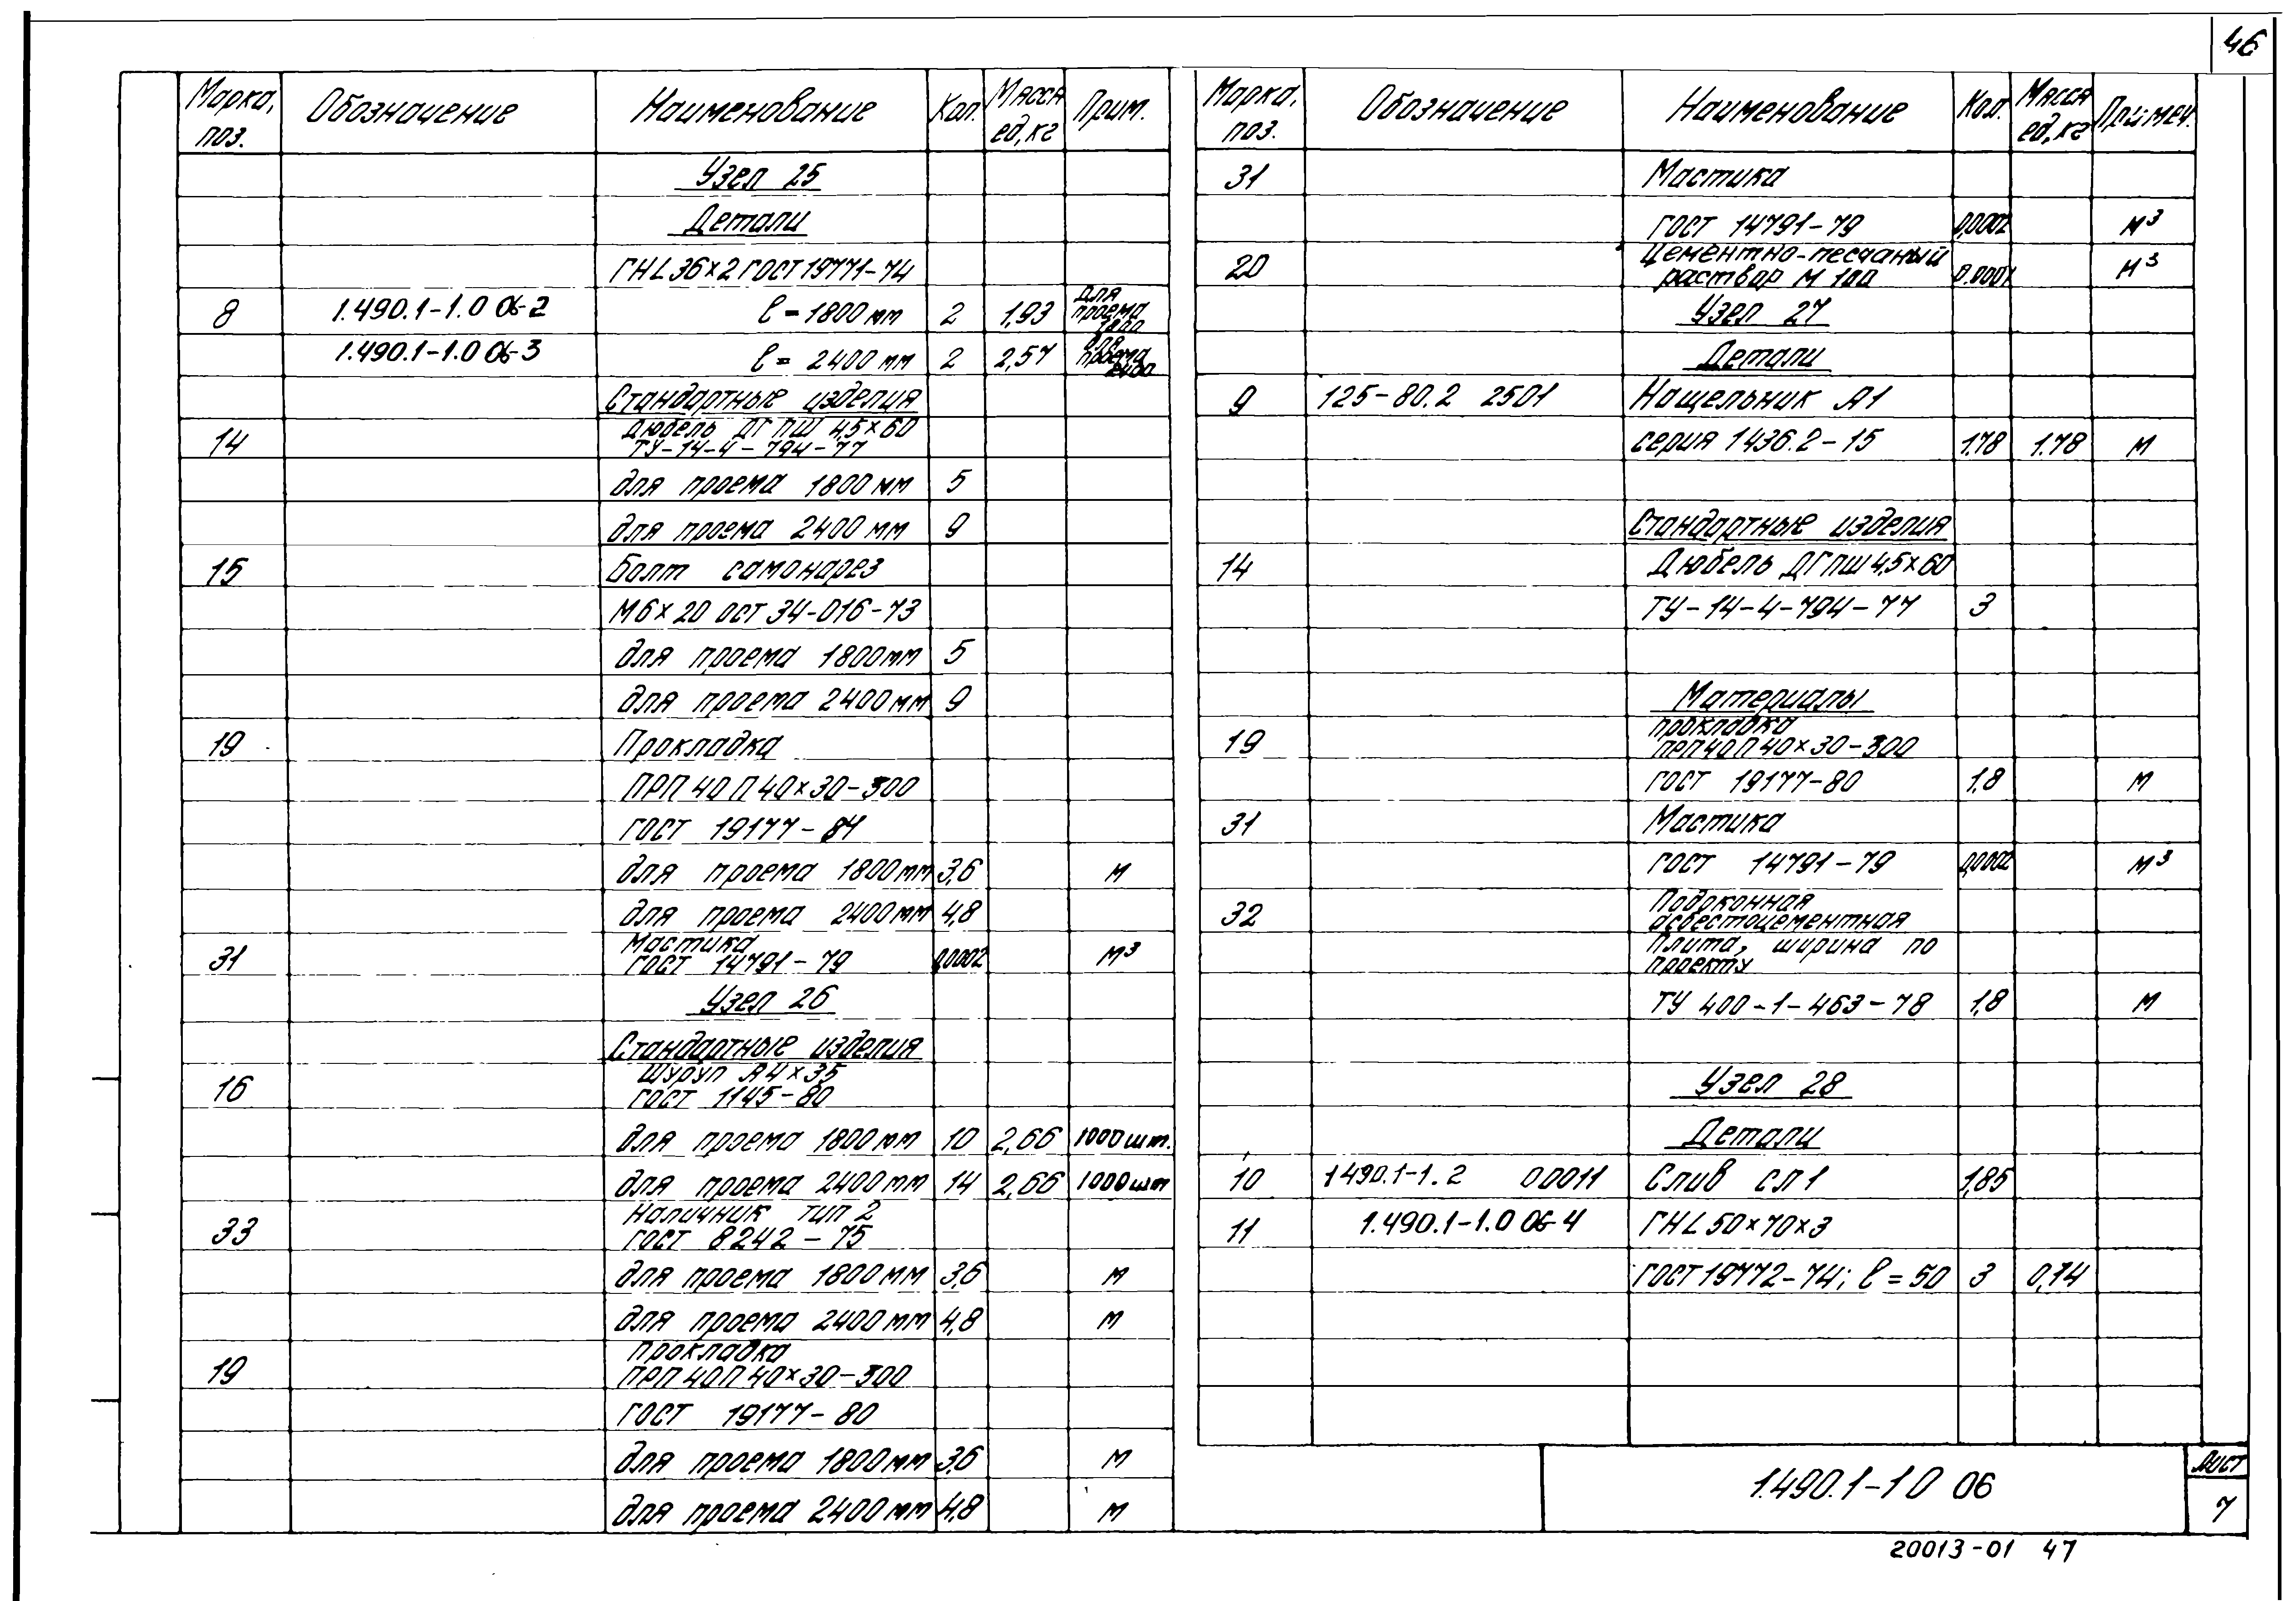 46
Марка, поз. Обозначение Наименование Кол. Масса ед, кг Прим.
Узел 25
Детали
ГН L 36×2 ГОСТ 19771-74
8 1.490.1-1.0 06-2 ℓ = 1800 мм 2 1,93 для проема 1800
1.490.1-1.0 06-3 ℓ = 2400 мм 2 2,57 для проема 2400
Стандартные изделия
14 Дюбель ДГПШ 4,5×60
ТУ-14-4-794-77
для проема 1800 мм 5
для проема 2400 мм 9
15 Болт самонарез
М6×20 ОСТ 34-016-73
для проема 1800 мм 5
для проема 2400 мм 9
19 Прокладка
ПРП 40 П 40×30-300
ГОСТ 19177-81
для проема 1800 мм 3,6 м
для проема 2400 мм 4,8
31 Мастика
ГОСТ 14791-79 0,0002 м³
Узел 26
Стандартные изделия
16 Шуруп А4×35
ГОСТ 1145-80
для проема 1800 мм 10 2,66 1000 шт.
для проема 2400 мм 14 2,66 1000 шт
33 Наличник тип 2
ГОСТ 8242-75
для проема 1800 мм 3,6 м
для проема 2400 мм 4,8 м
19 Прокладка
ПРП 40 П 40×30-300
ГОСТ 19177-80
для проема 1800 мм 3,6 м
для проема 2400 мм 4,8 м
Марка, поз. Обозначение Наименование Кол. Масса ед, кг Примеч.
31 Мастика
ГОСТ 14791-79 0,0002 м³
20 Цементно-песчаный
раствор М 100 0.0001 м³
Узел 27
Детали
9 125-80.2 2501 Нащельник А1
серия 1436.2-15 1.78 1.78 м
Стандартные изделия
14 Дюбель ДГПШ 4,5×60
ТУ-14-4-794-77 3
Материалы
19 Прокладка
ПРП 40 П 40×30-300
ГОСТ 19177-80 1,8 м
31 Мастика
ГОСТ 14791-79 0,0002 м³
32 Подоконная
асбестоцементная
плита, ширина по
проекту
ТУ 400-1-463-78 1,8 м
Узел 28
Детали
10 1490.1-1.2 00011 Слив СЛ1 1,85
11 1.490.1-1.0 06-4 ГН L 50×70×3
ГОСТ 19772-74; ℓ = 50 3 0,14
1.490.1-1 0 06
Лист
7
20013-01 47